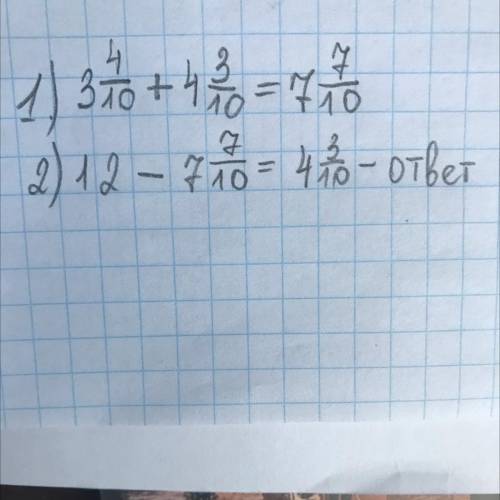 1) 3 4/10 + 4 3/10 = 7 7/10
2) 12 - 7 7/10 = 4 3/10 - ответ